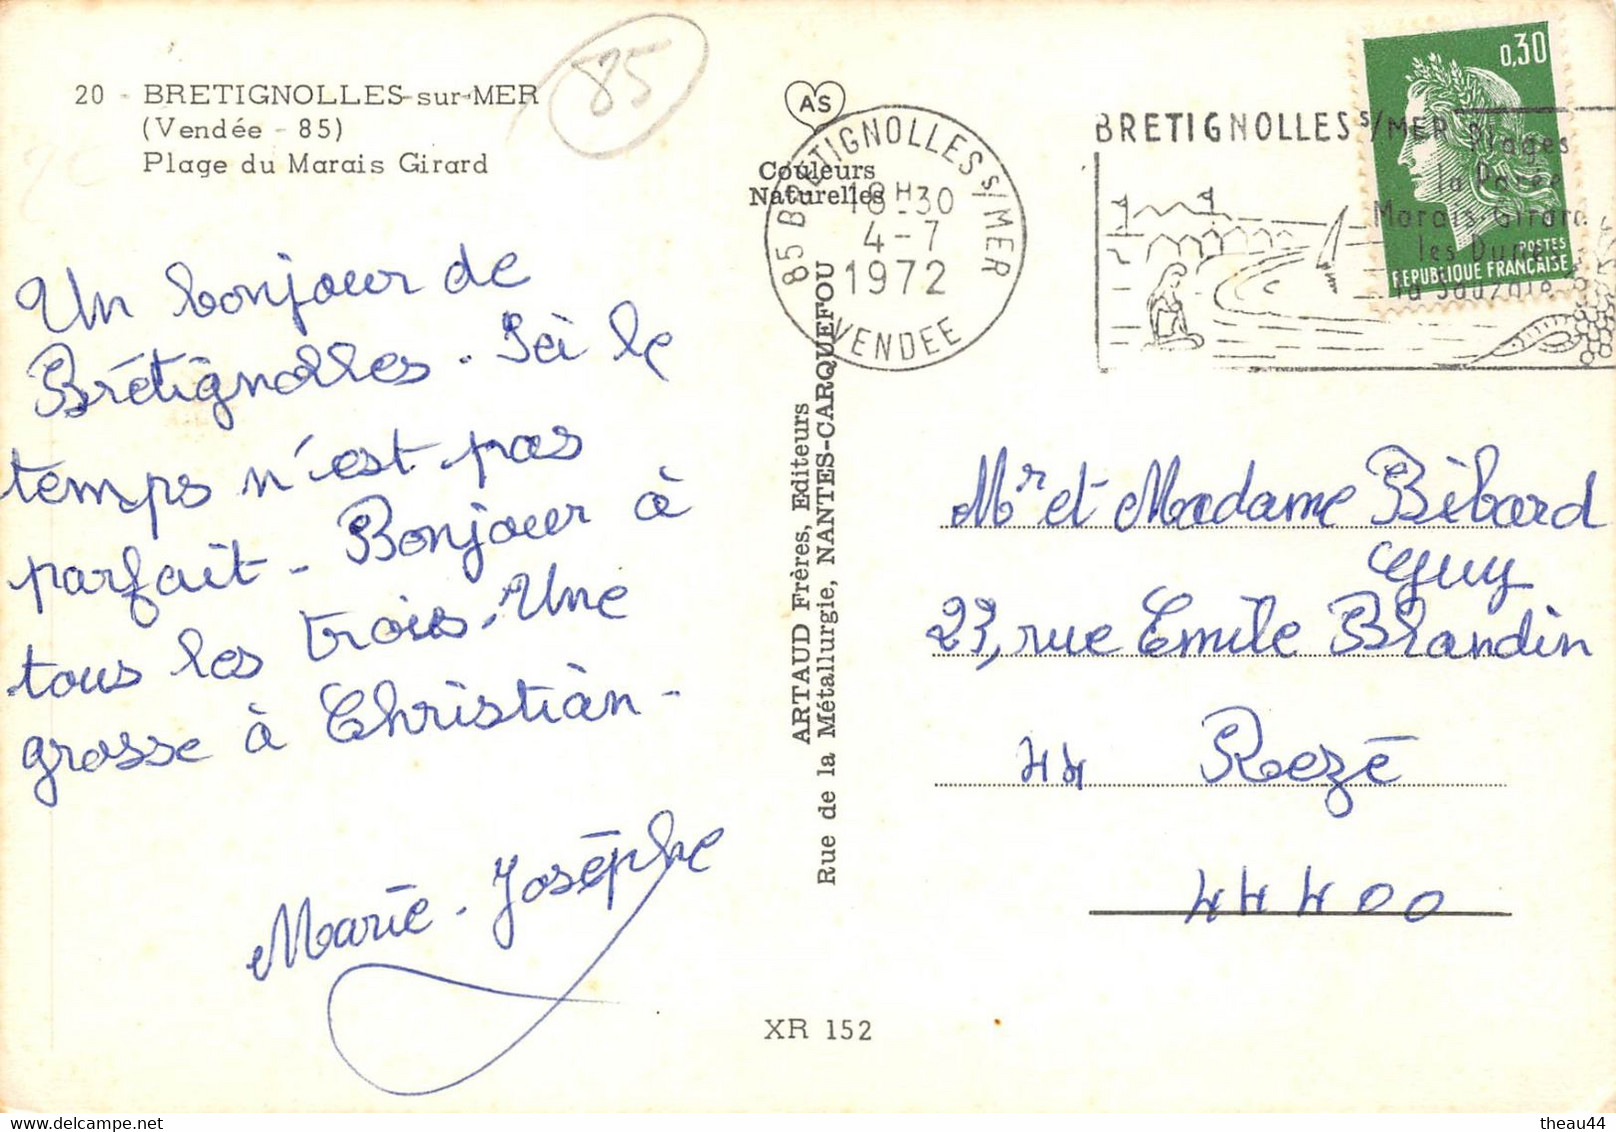 20 - BRETIGNOLLES-sur-MER
(Vendée - 85)
Plage du Marais Girard
85
Un bonjour de
Brétignolles. Ici le
temps n'est pas
parfait - Bonjour à
tous les trois. Une
grosse à Christian -
Marie-Josèphe
AS
Couleurs
Naturelles
ARTAUD Frères, Editeurs
Rue de la Métallurgie, NANTES-CARQUEFOU
XR 152
85 BRETIGNOLLES S/MER
18H30
4-7
1972
VENDEE
BRETIGNOLLES S/MER
Plages
la Parée
Marais Girard
les Dunes
la Sauzaie
0,30
POSTES
REPUBLIQUE FRANÇAISE
Mr et Madame Bèbard
Guy
23, rue Emile Blandin
44 Rezé
44400
theau44